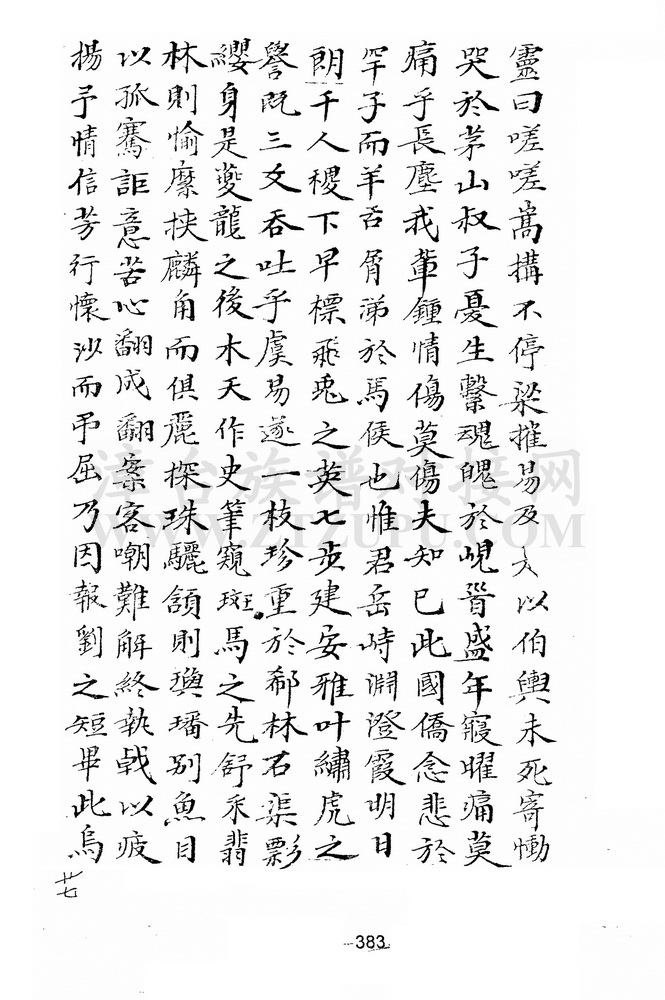 靈曰嗟嗟嵩搆不停梁摧曷及 以伯輿未死寄慟
哭於茅山叔子憂生繫魂魄於峴首盛年寢曜痛莫
痛乎長塵我輩鍾情傷莫傷夫知已此國僑念悲於
罕子而羊舌胥涕於馬侯也惟君岳峙淵澄霞明日
朗千人稷下早標飛兎之英七步建安雅叶繡虎之
譽既三爻吞吐乎虞易遂一枝珍重於郄林石渠影
纓身是夔龍之後木天作史筆窺班馬之先舒釆翡
林則愉縻挾麟角而俱麗探珠驪頷則璵璠別魚目
以孤騫詎意苦心翻成翻案客嘲難解終執戟以疲
揚予情信芳行懷沙而弔屈乃因報劉之短畢此烏
廿七
-383-
津台族谱对接网
WWW.ZTZUPU.COM